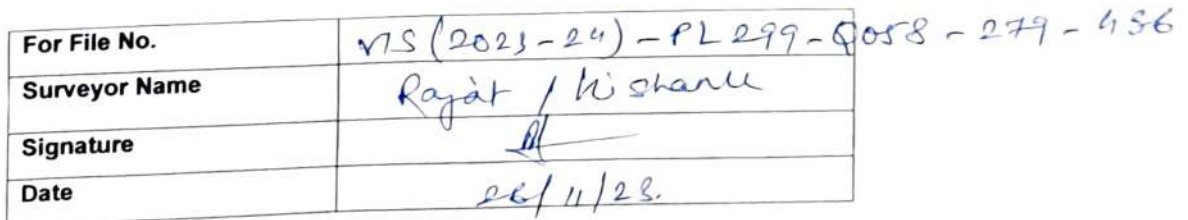 For File No. VIS (2023-24) - PL299 - Q058 - 279 - 456
Surveyor Name Rajat /
Signature
Date 26/11/23.